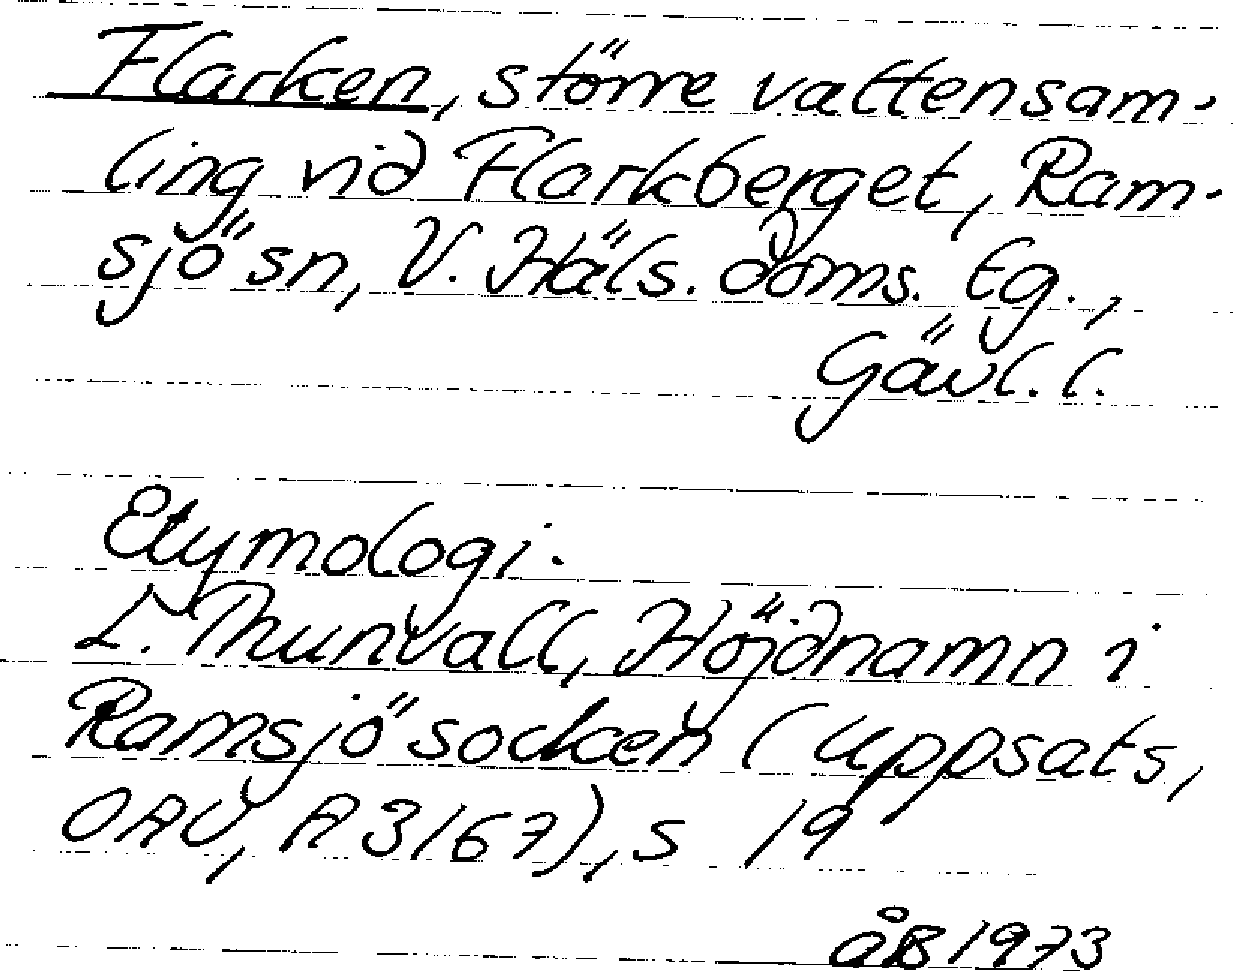 Flarken, större vattensam-
ling vid Flarkberget, Ram-
sjö sn, V. Häls. doms. tg.,
Gävl. l.
Etymologi.
L. Thunvall, Höjdnamn i
Ramsjö socken (Uppsats,
OAU, A 3167), s 19
åB 1973